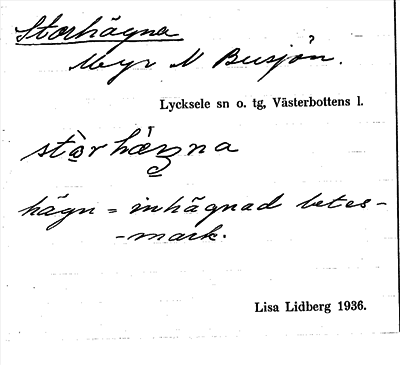 Storhägna
Myr N Busjön.
Lycksele sn o. tg, Västerbottens l.
stòrhæ̀ŋna
hägn = inhägnad betes-
-mark.
Lisa Lidberg 1936.